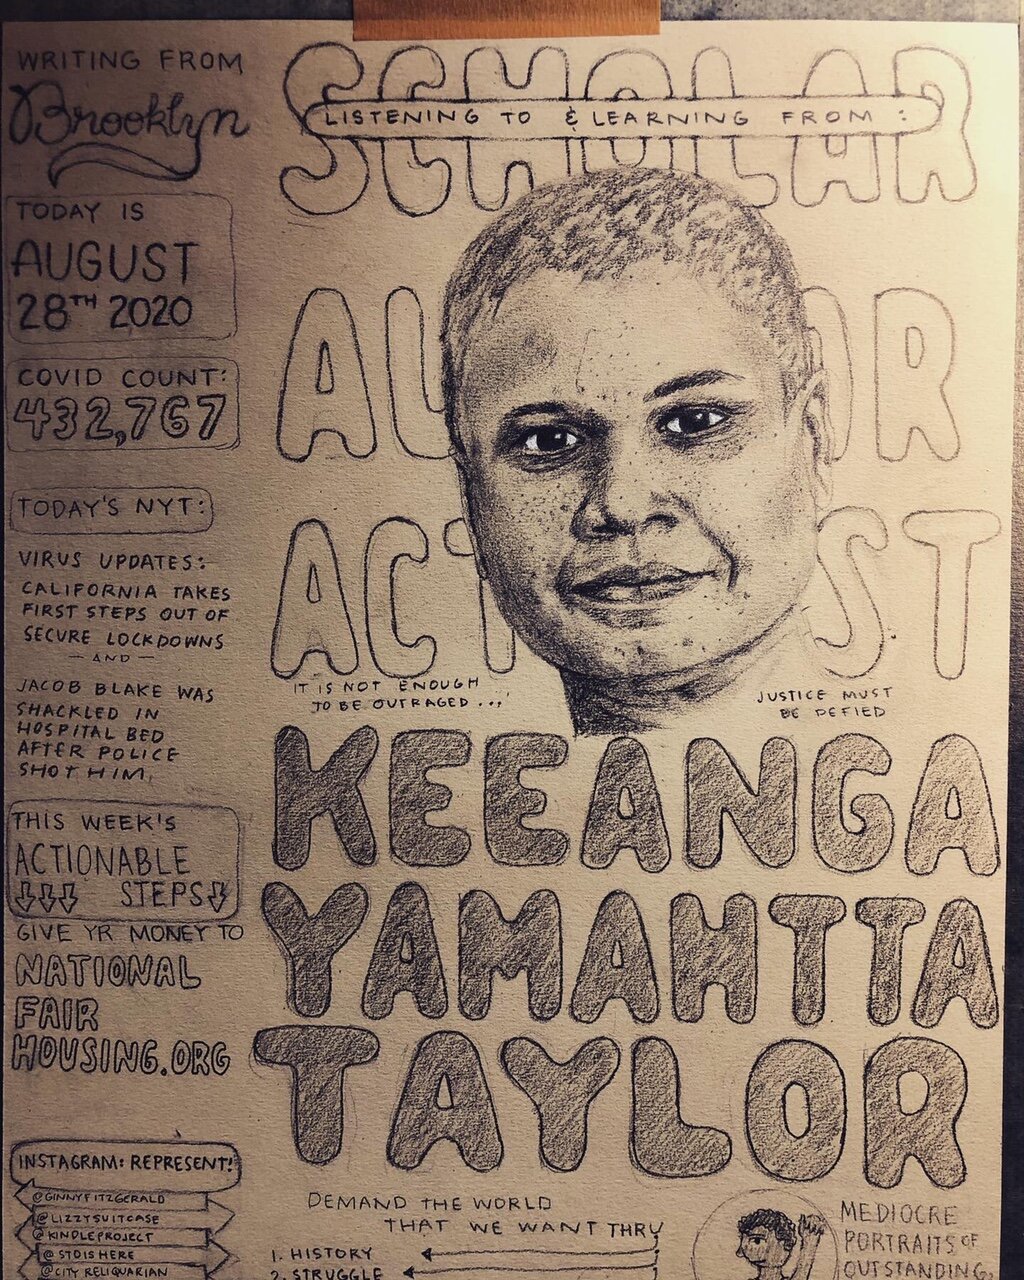 WRITING FROM
Brooklyn
TODAY IS
AUGUST
28TH 2020
COVID COUNT:
432,767
TODAY'S NYT:
VIRUS UPDATES:
CALIFORNIA TAKES
FIRST STEPS OUT OF
SECURE LOCKDOWNS
— AND —
JACOB BLAKE WAS
SHACKLED IN
HOSPITAL BED
AFTER POLICE
SHOT HIM.
THIS WEEK'S
ACTIONABLE
STEPS
GIVE YR MONEY TO
NATIONAL
FAIR
HOUSING.ORG
INSTAGRAM: REPRESENT!
@GINNYFITZGERALD
@LIZZYSUITCASE
@KINDLEPROJECT
@STDISHERE
@CITY RELIQUARIAN
SCHOLAR
LISTENING TO & LEARNING FROM :
AU OR
ACT ST
IT IS NOT ENOUGH
TO BE OUTRAGED...
JUSTICE MUST
BE DEFIED
KEEANGA
YAMAHTTA
TAYLOR
DEMAND THE WORLD
THAT WE WANT THRU
1. HISTORY
2. STRUGGLE
MEDIOCRE
PORTRAITS OF
OUTSTANDING